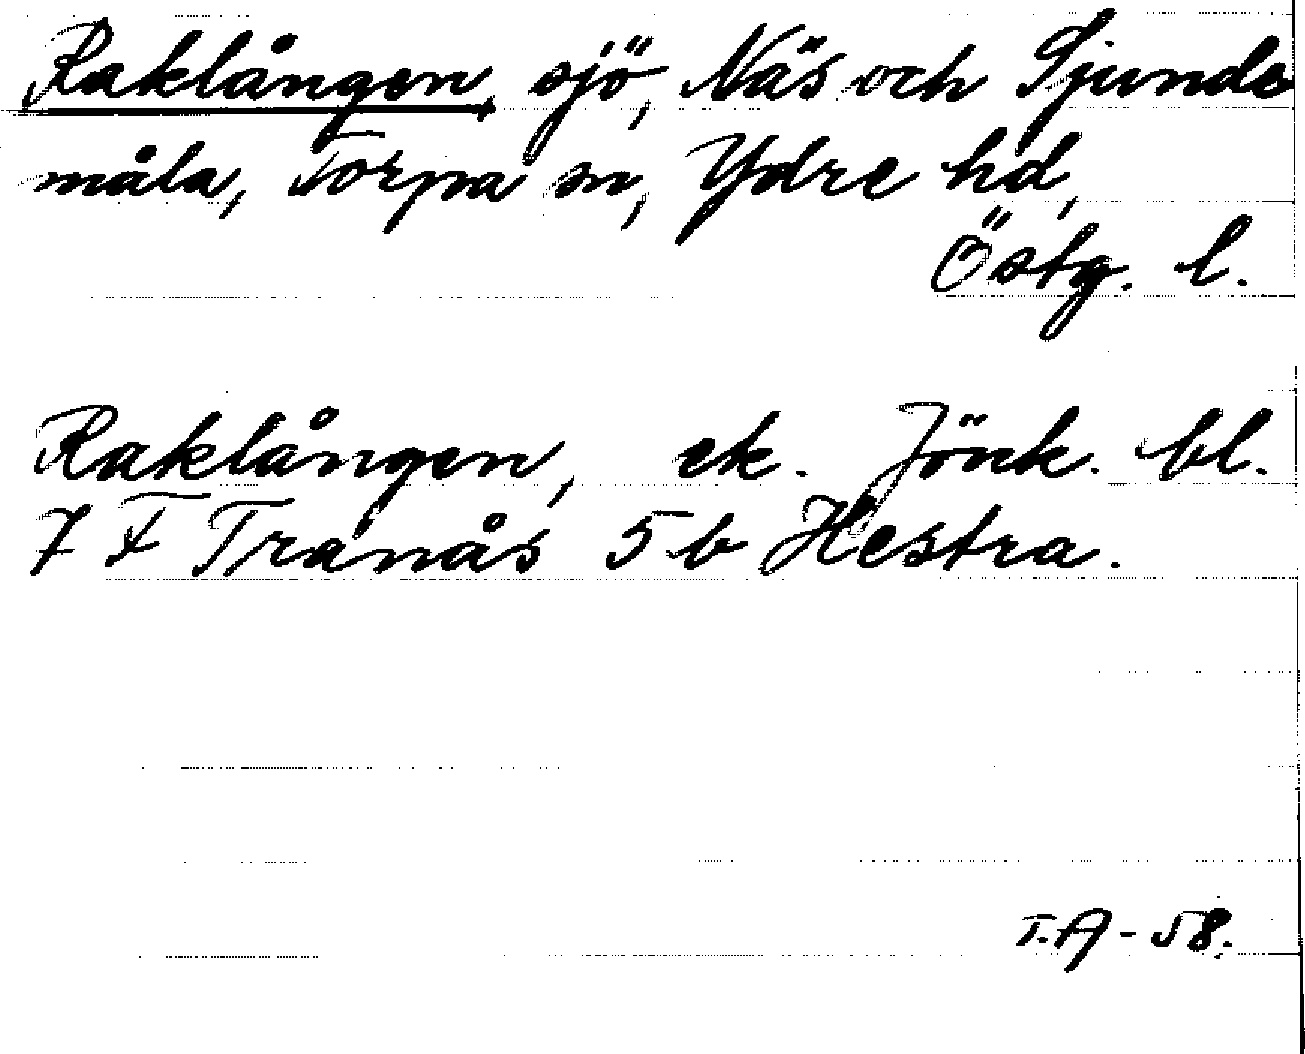 Raklången, sjö, Näs och Sjunde
måla, Torpa sn, Ydre hd,
Östg. l.
Raklången, ek. Jönk. bl.
7 F Tranås 5 b Hestra.
T.A - 58.